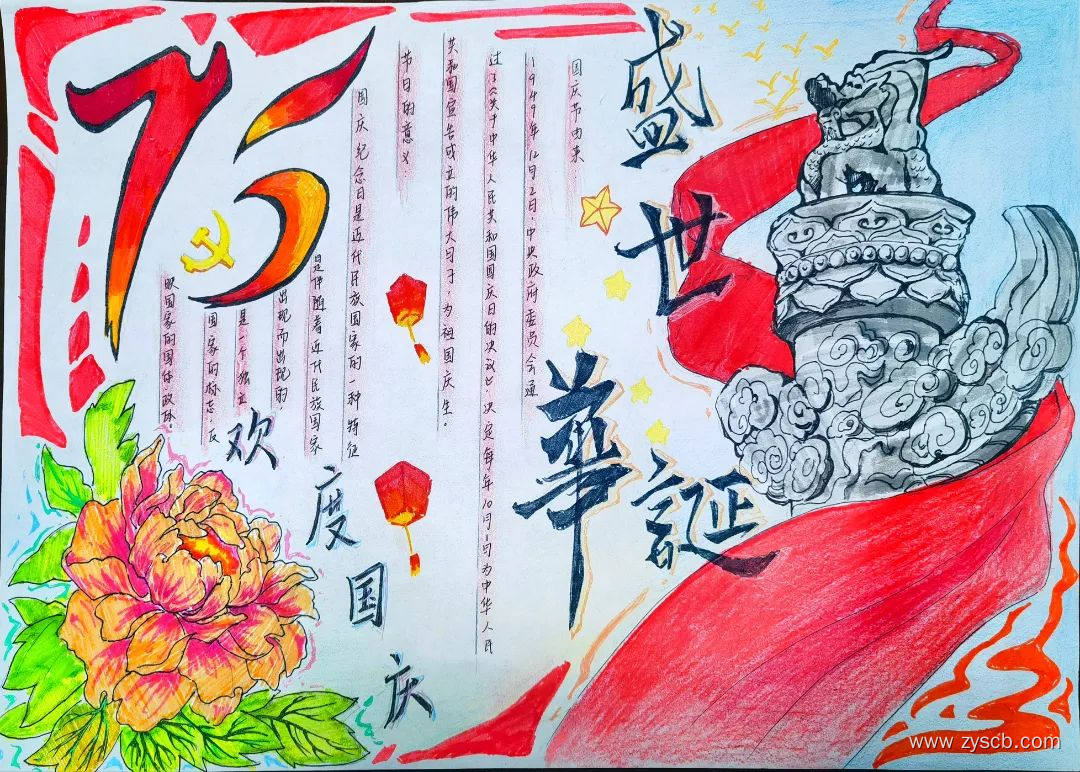 盛世華誕
国庆节由来
1949年12月2日,中央政府委员会通
过了《关于中华人民共和国国庆日的决议》,决定每年10月1日为中华人民
共和国宣告成立的伟大日子,为祖国庆生。
节日的意义
国庆纪念日是近代民族国家的一种特征
是伴随着近代民族国家
出现而出现的,
是一个独立
国家的标志,反
映国家的国体政体。
75
欢度国庆
www.zyscb.com